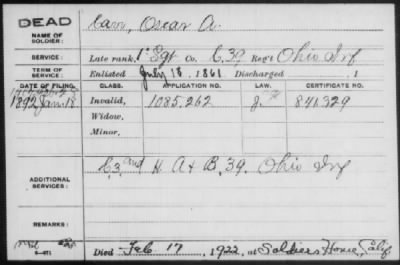 DEAD
NAME OF SOLDIER: Carr, Oscar A.
SERVICE: Late rank, 1" Sgt Co. C, 39 Reg't Ohio Inf
TERM OF SERVICE: Enlisted July 18, 1861 Discharged , 1
DATE OF FILING. CLASS. APPLICATION NO. LAW. CERTIFICATE NO.
1892 Jan. 18 Invalid, 1085,262 841,329
Widow,
Minor,
ADDITIONAL SERVICES: C, 3, and H A & B, 39. Ohio Inf
REMARKS:
Died Feb 17, 1922, at Soldiers Home, Calif